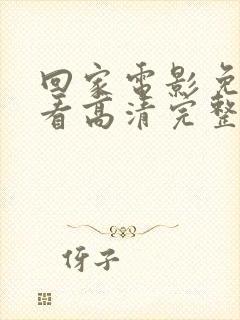 回家电影免
看高清完整
伢子